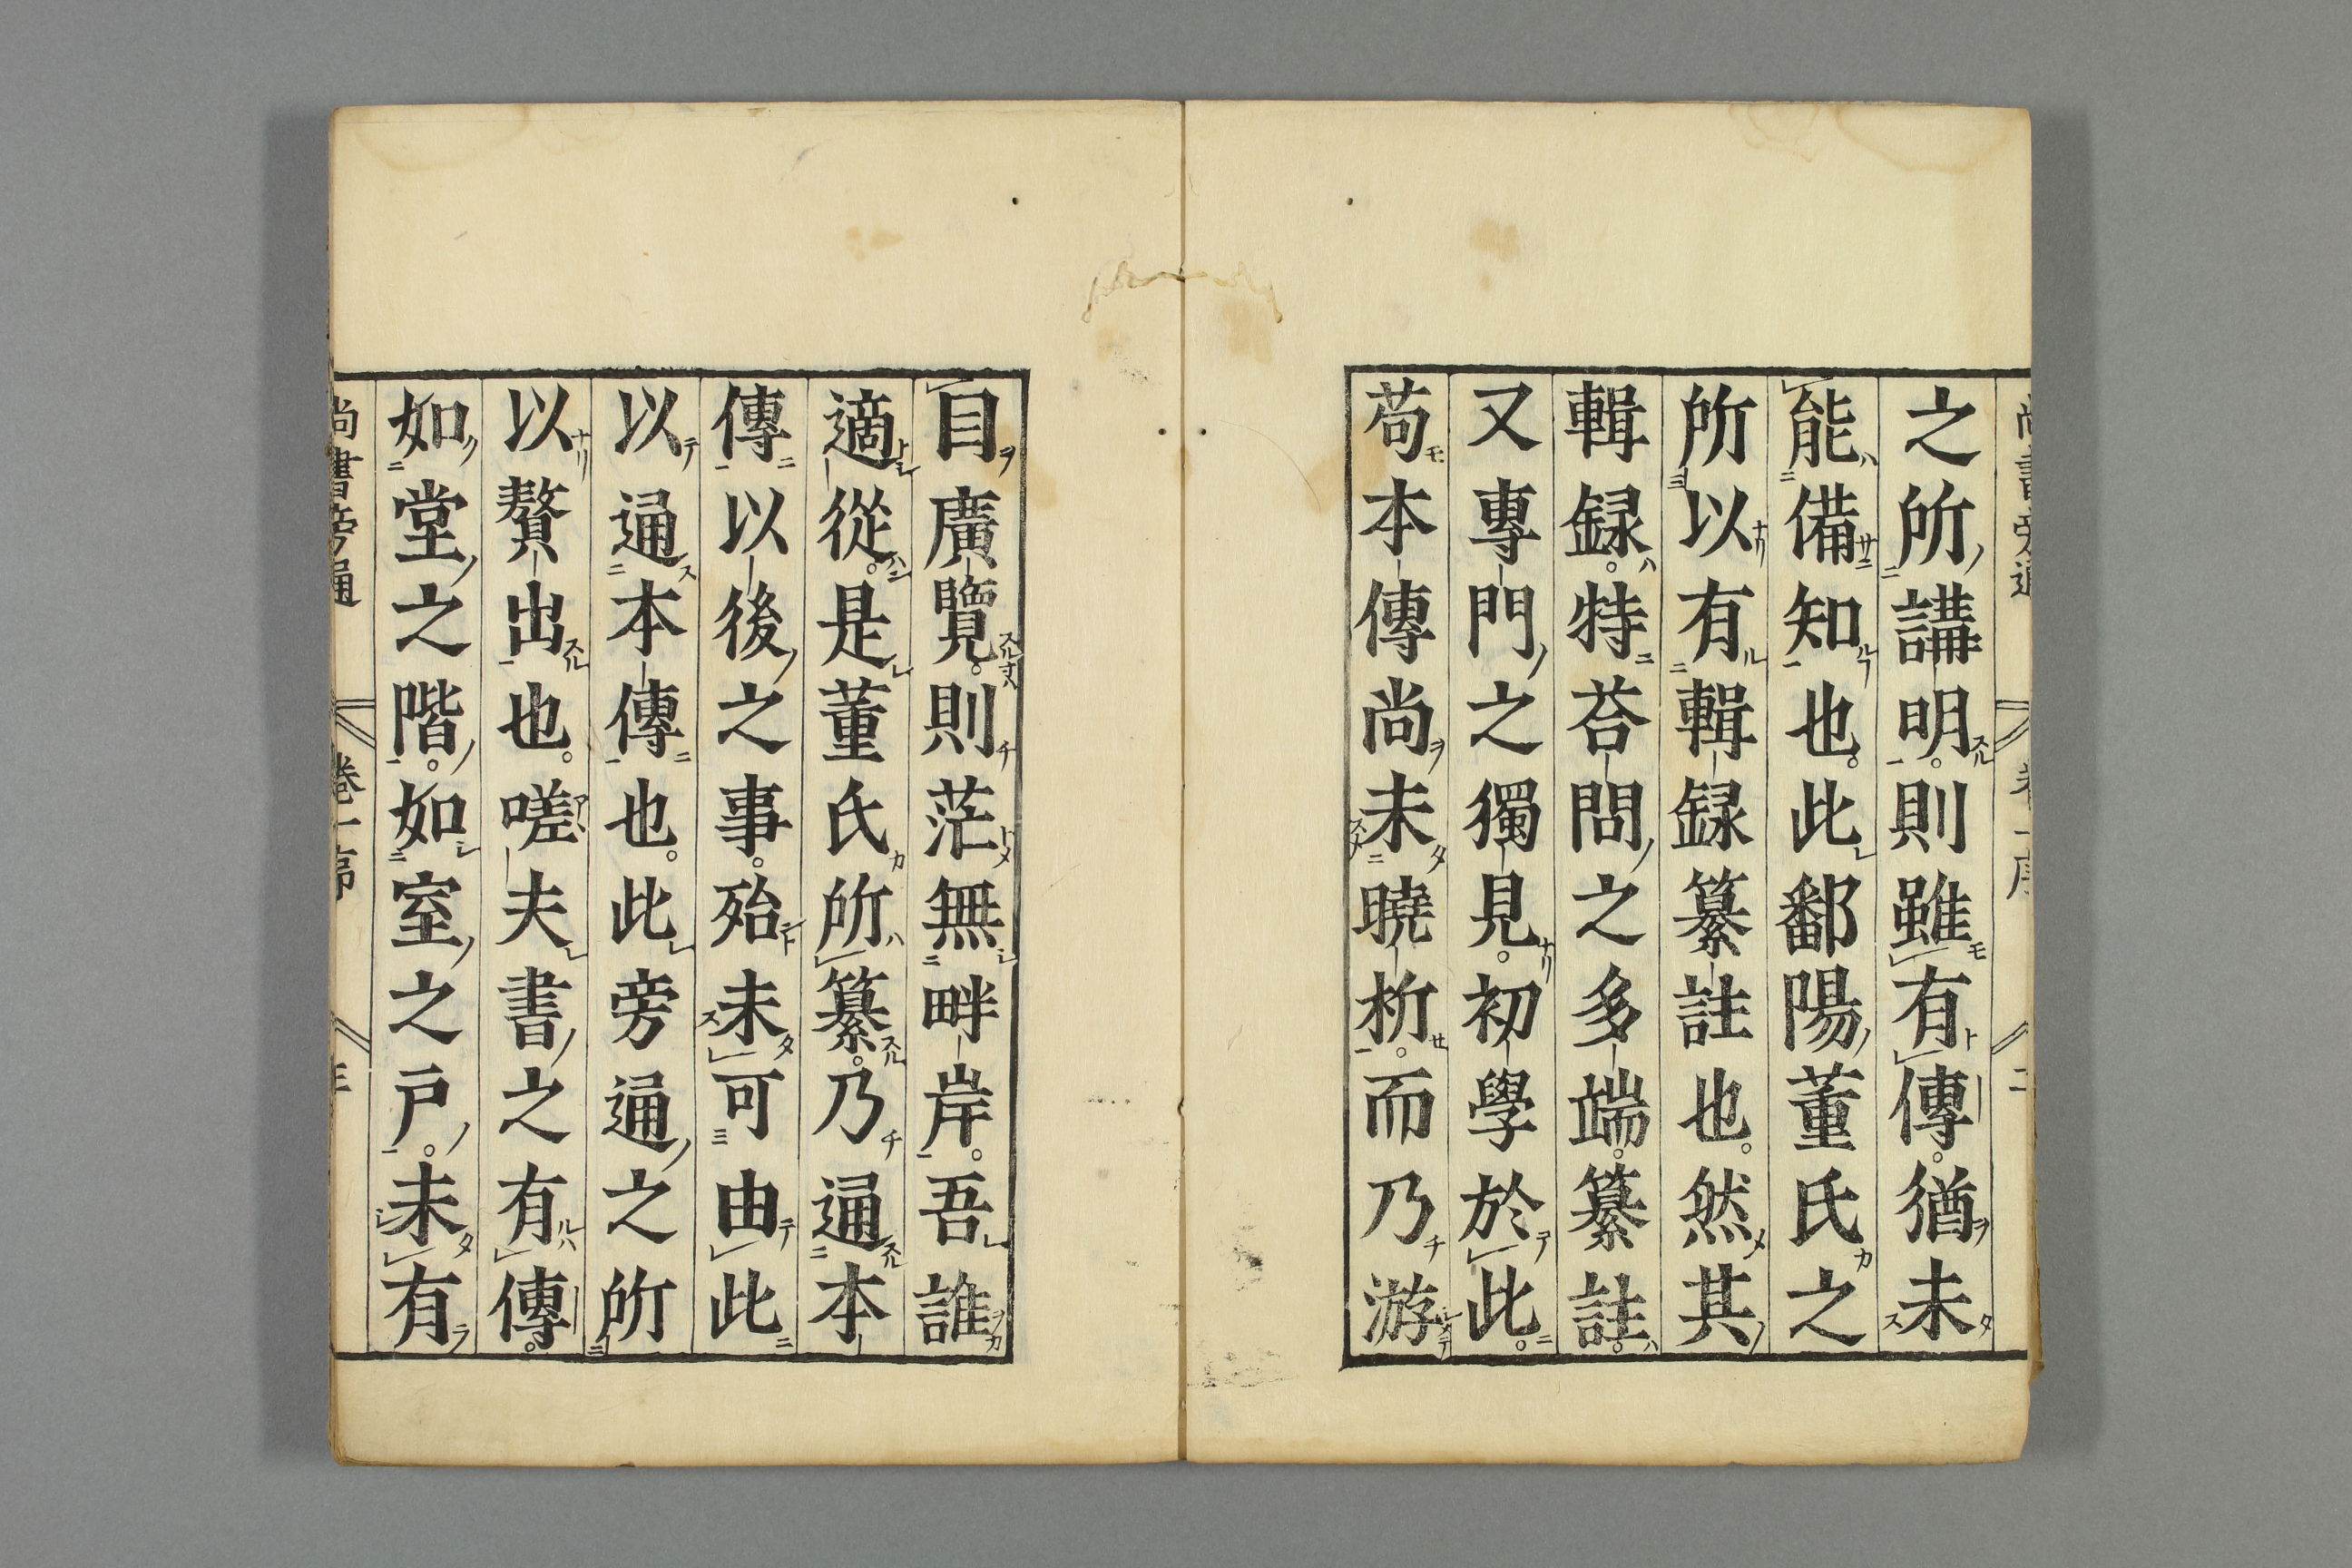 之所講明。則雖有傳。猶未
能備知也。此鄱陽董氏之
所以有輯録纂註也。然其
輯録。特荅問之多端。纂註。
又專門之獨見。初學於此。
苟本傳尚未曉析。而乃游
目廣覽。則茫無畔岸。吾誰
適從。是董氏所纂。乃通本
傳以後之事。殆未可由此
以通本傳也。此旁通之所
以贅出也。嗟夫書之有傳。
如堂之階。如室之戸。未有
尚書旁通 卷一序